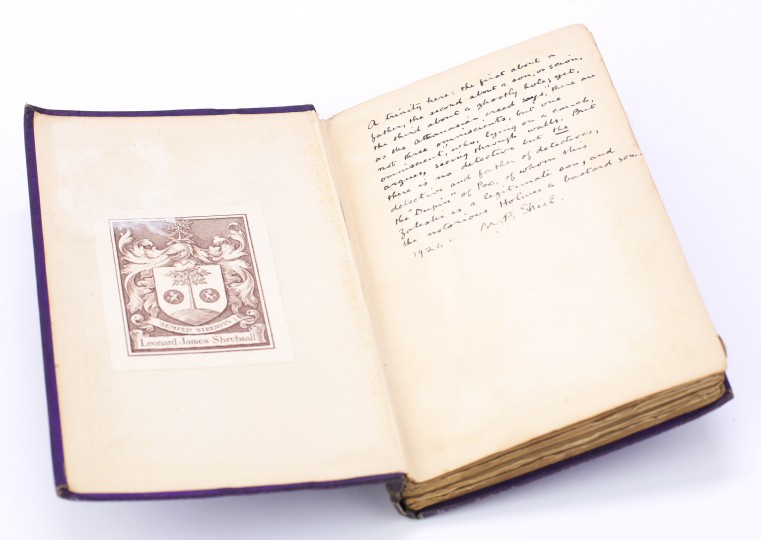 SEMPER STRENVVS
Leonard James Shrubsall
A trinity here: the first about a
father, the second about a son, or scion,
the third about a ghostly hole; yet,
as the Athanasian creed says, "there are
not three omniscients, but one
omniscient," who, lying on a couch,
argues, seeing through walls. But
there is no detective but the
detective and father of detectives,
the "Dupin" of Poe, of whom this
Zaleski is a legitimate son, and
the notorious Holmes a bastard son.
M. P. Shiel.